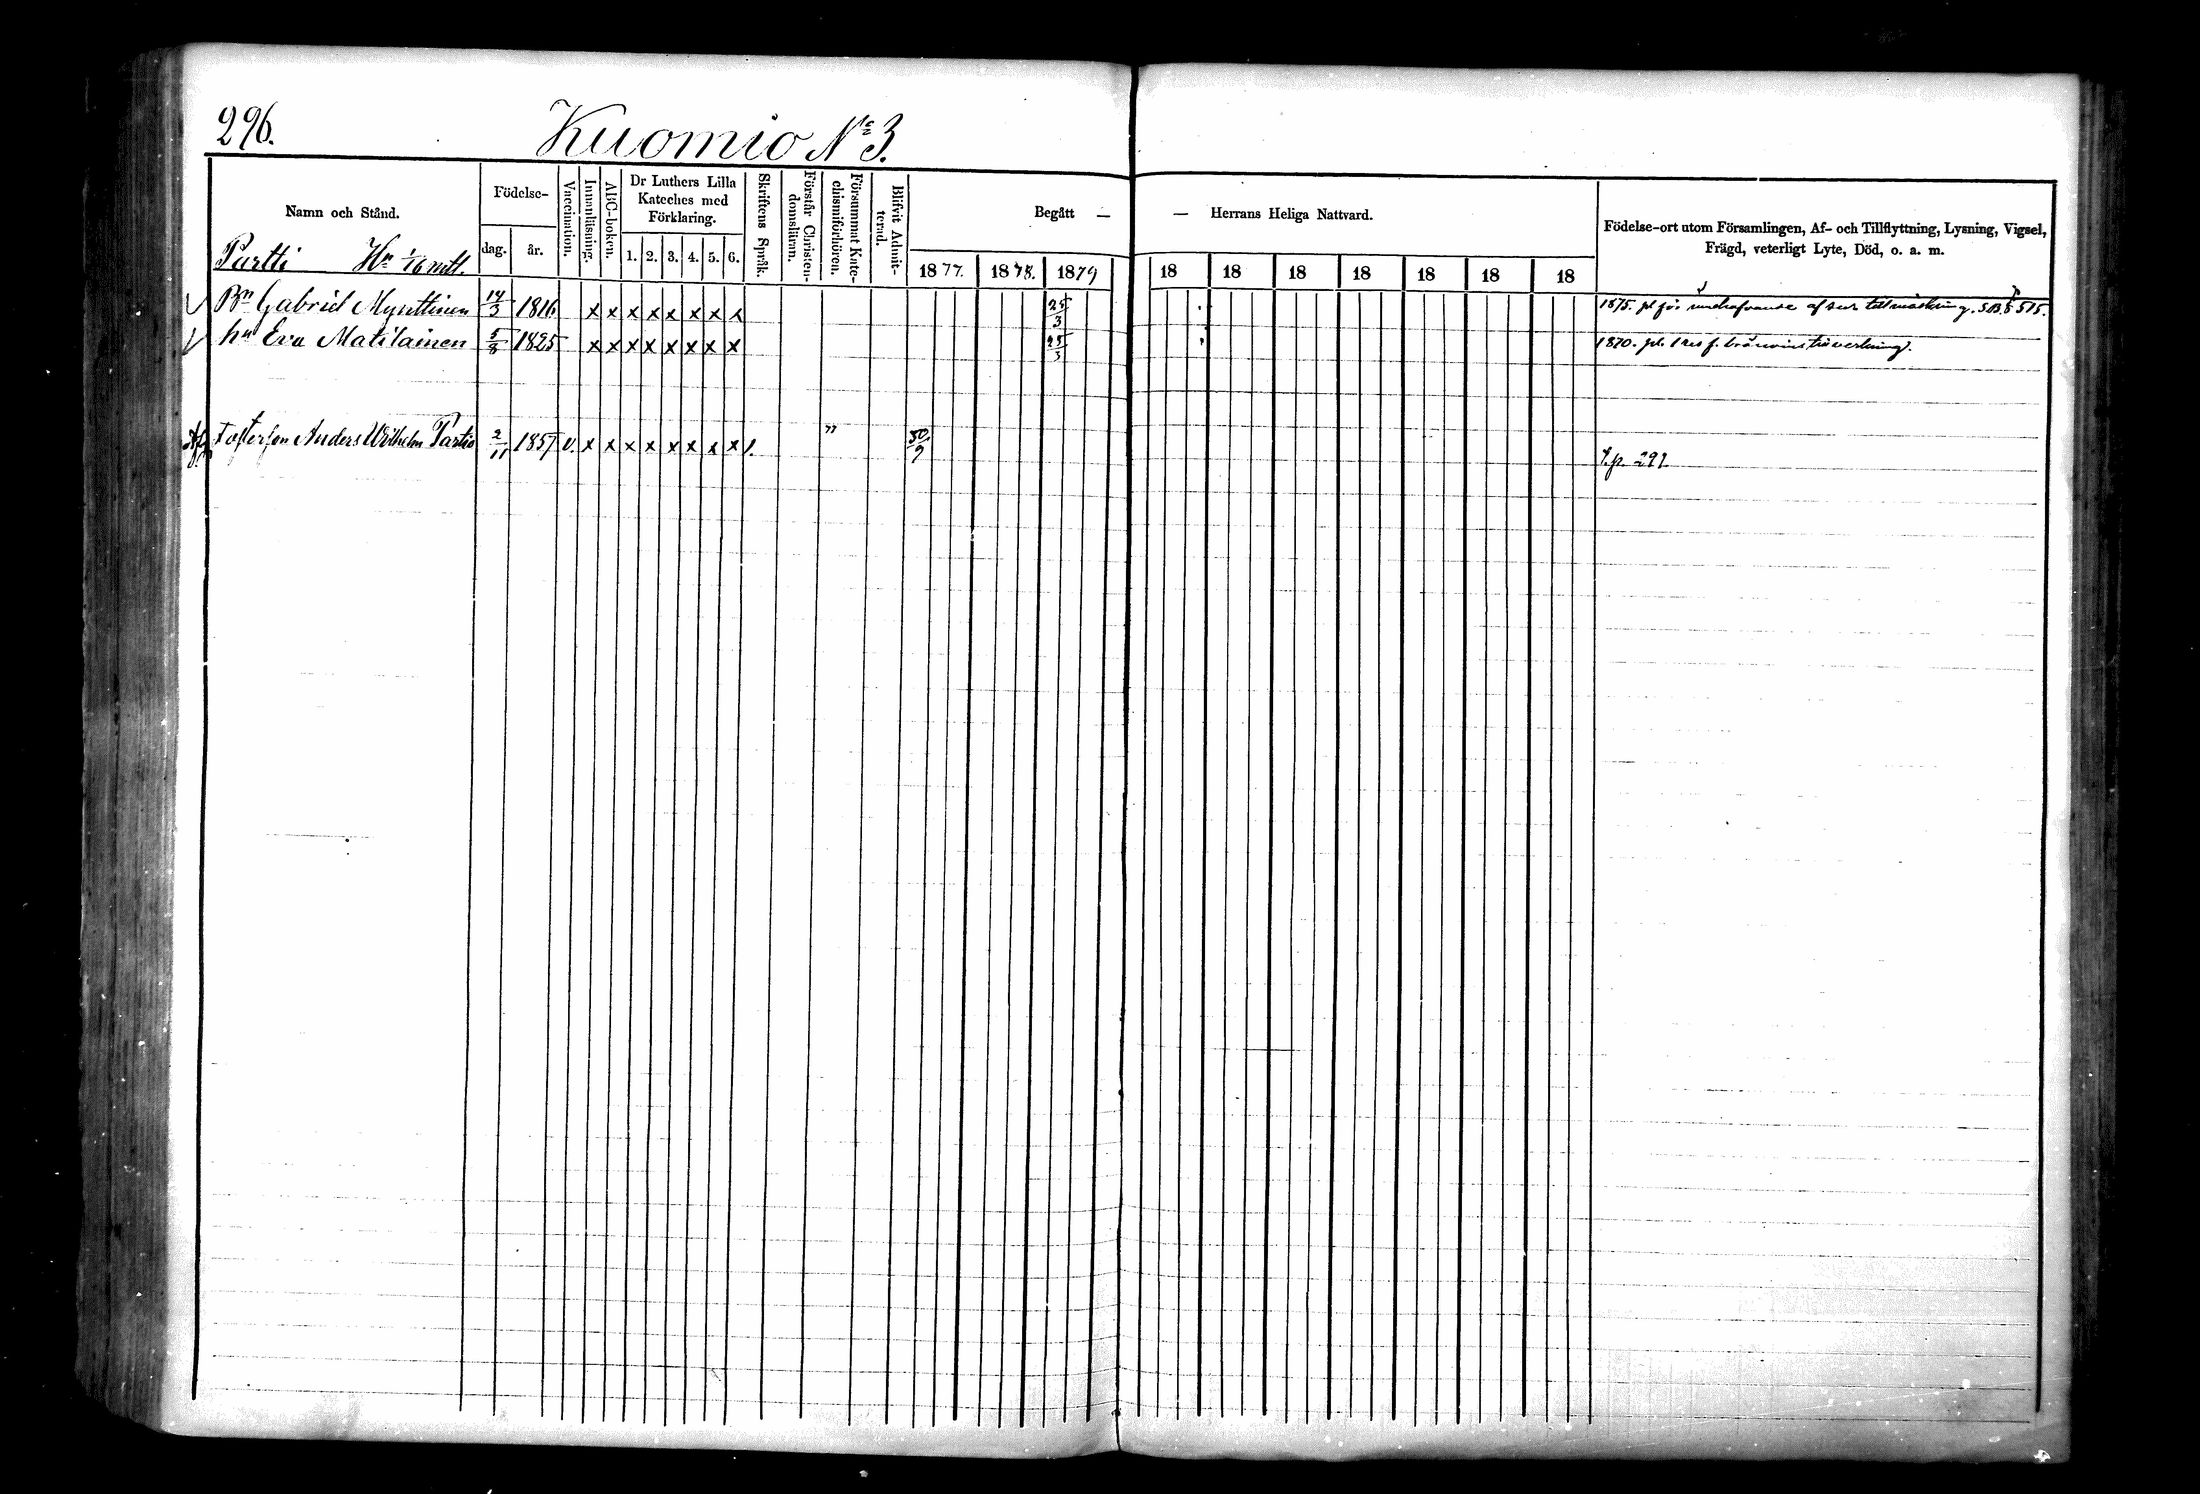 296.
Kuomio No 3.
Namn och Stånd.
Födelse-
dag.
år.
Vaccination.
Innanläsning.
ABC-boken.
Dr Luthers Lilla
Kateches med
Förklaring.
1. 2. 3. 4. 5. 6.
Skriftens Språk.
Förstår Christen-
domsläran.
Försummat Kate-
chismiförhören.
Blifvit Admit-
terad.
Begått — — Herrans Heliga Nattvard.
1877. 1878. 1879 18 18 18 18 18 18 18
Födelse-ort utom Församlingen, Af- och Tillflyttning, Lysning, Vigsel,
Frägd, veterligt Lyte, Död, o. a. m.
Partti Hn 1/16 mtl.
Bn Gabriel Mynttinen 14/3 1816 x x x x x x x x 25/3 1875. pl för af 515.
hu Eva Matilainen 5/8 1825 x x x x x x x x 25/3 1870. f. bränvins
Fosterson Anders Wilhelm Partio 2/11 1857 v. x x x x x x x x " 30/9